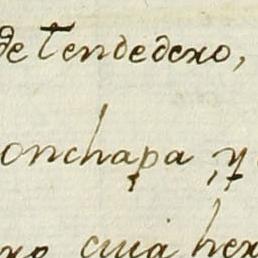 de Tendedero,
onchapa, y
cuia her